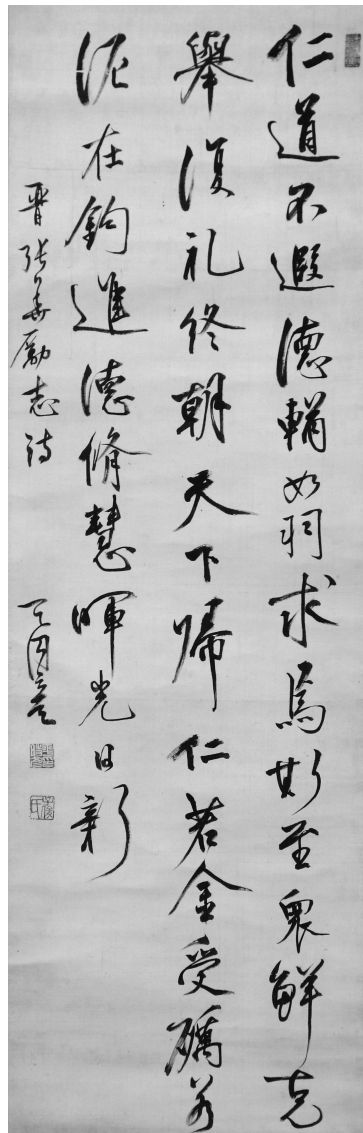 仁道不遐德輶如羽求焉斯至衆鮮克
舉復礼終朝天下歸仁若金受礪若
泥在鈞進德脩慧暉光日新
晉張華勵志詩